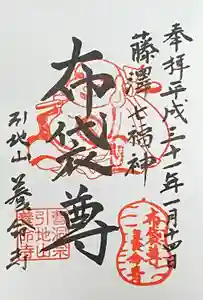 奉拝 平成三十一年一月十四日
藤澤七福神
布袋尊
引地山 養命寺
布袋尊
養命寺
曹洞宗
引地山
養命寺